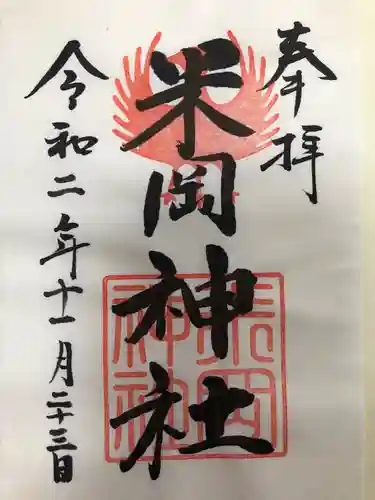 奉拝
米岡神社
米岡神社
令和二年十一月二十三日